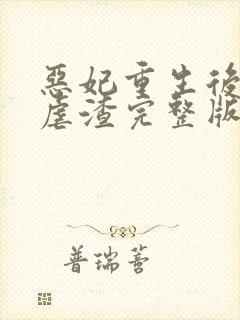 惡妃重生後
虐渣完整版
普瑞蒼